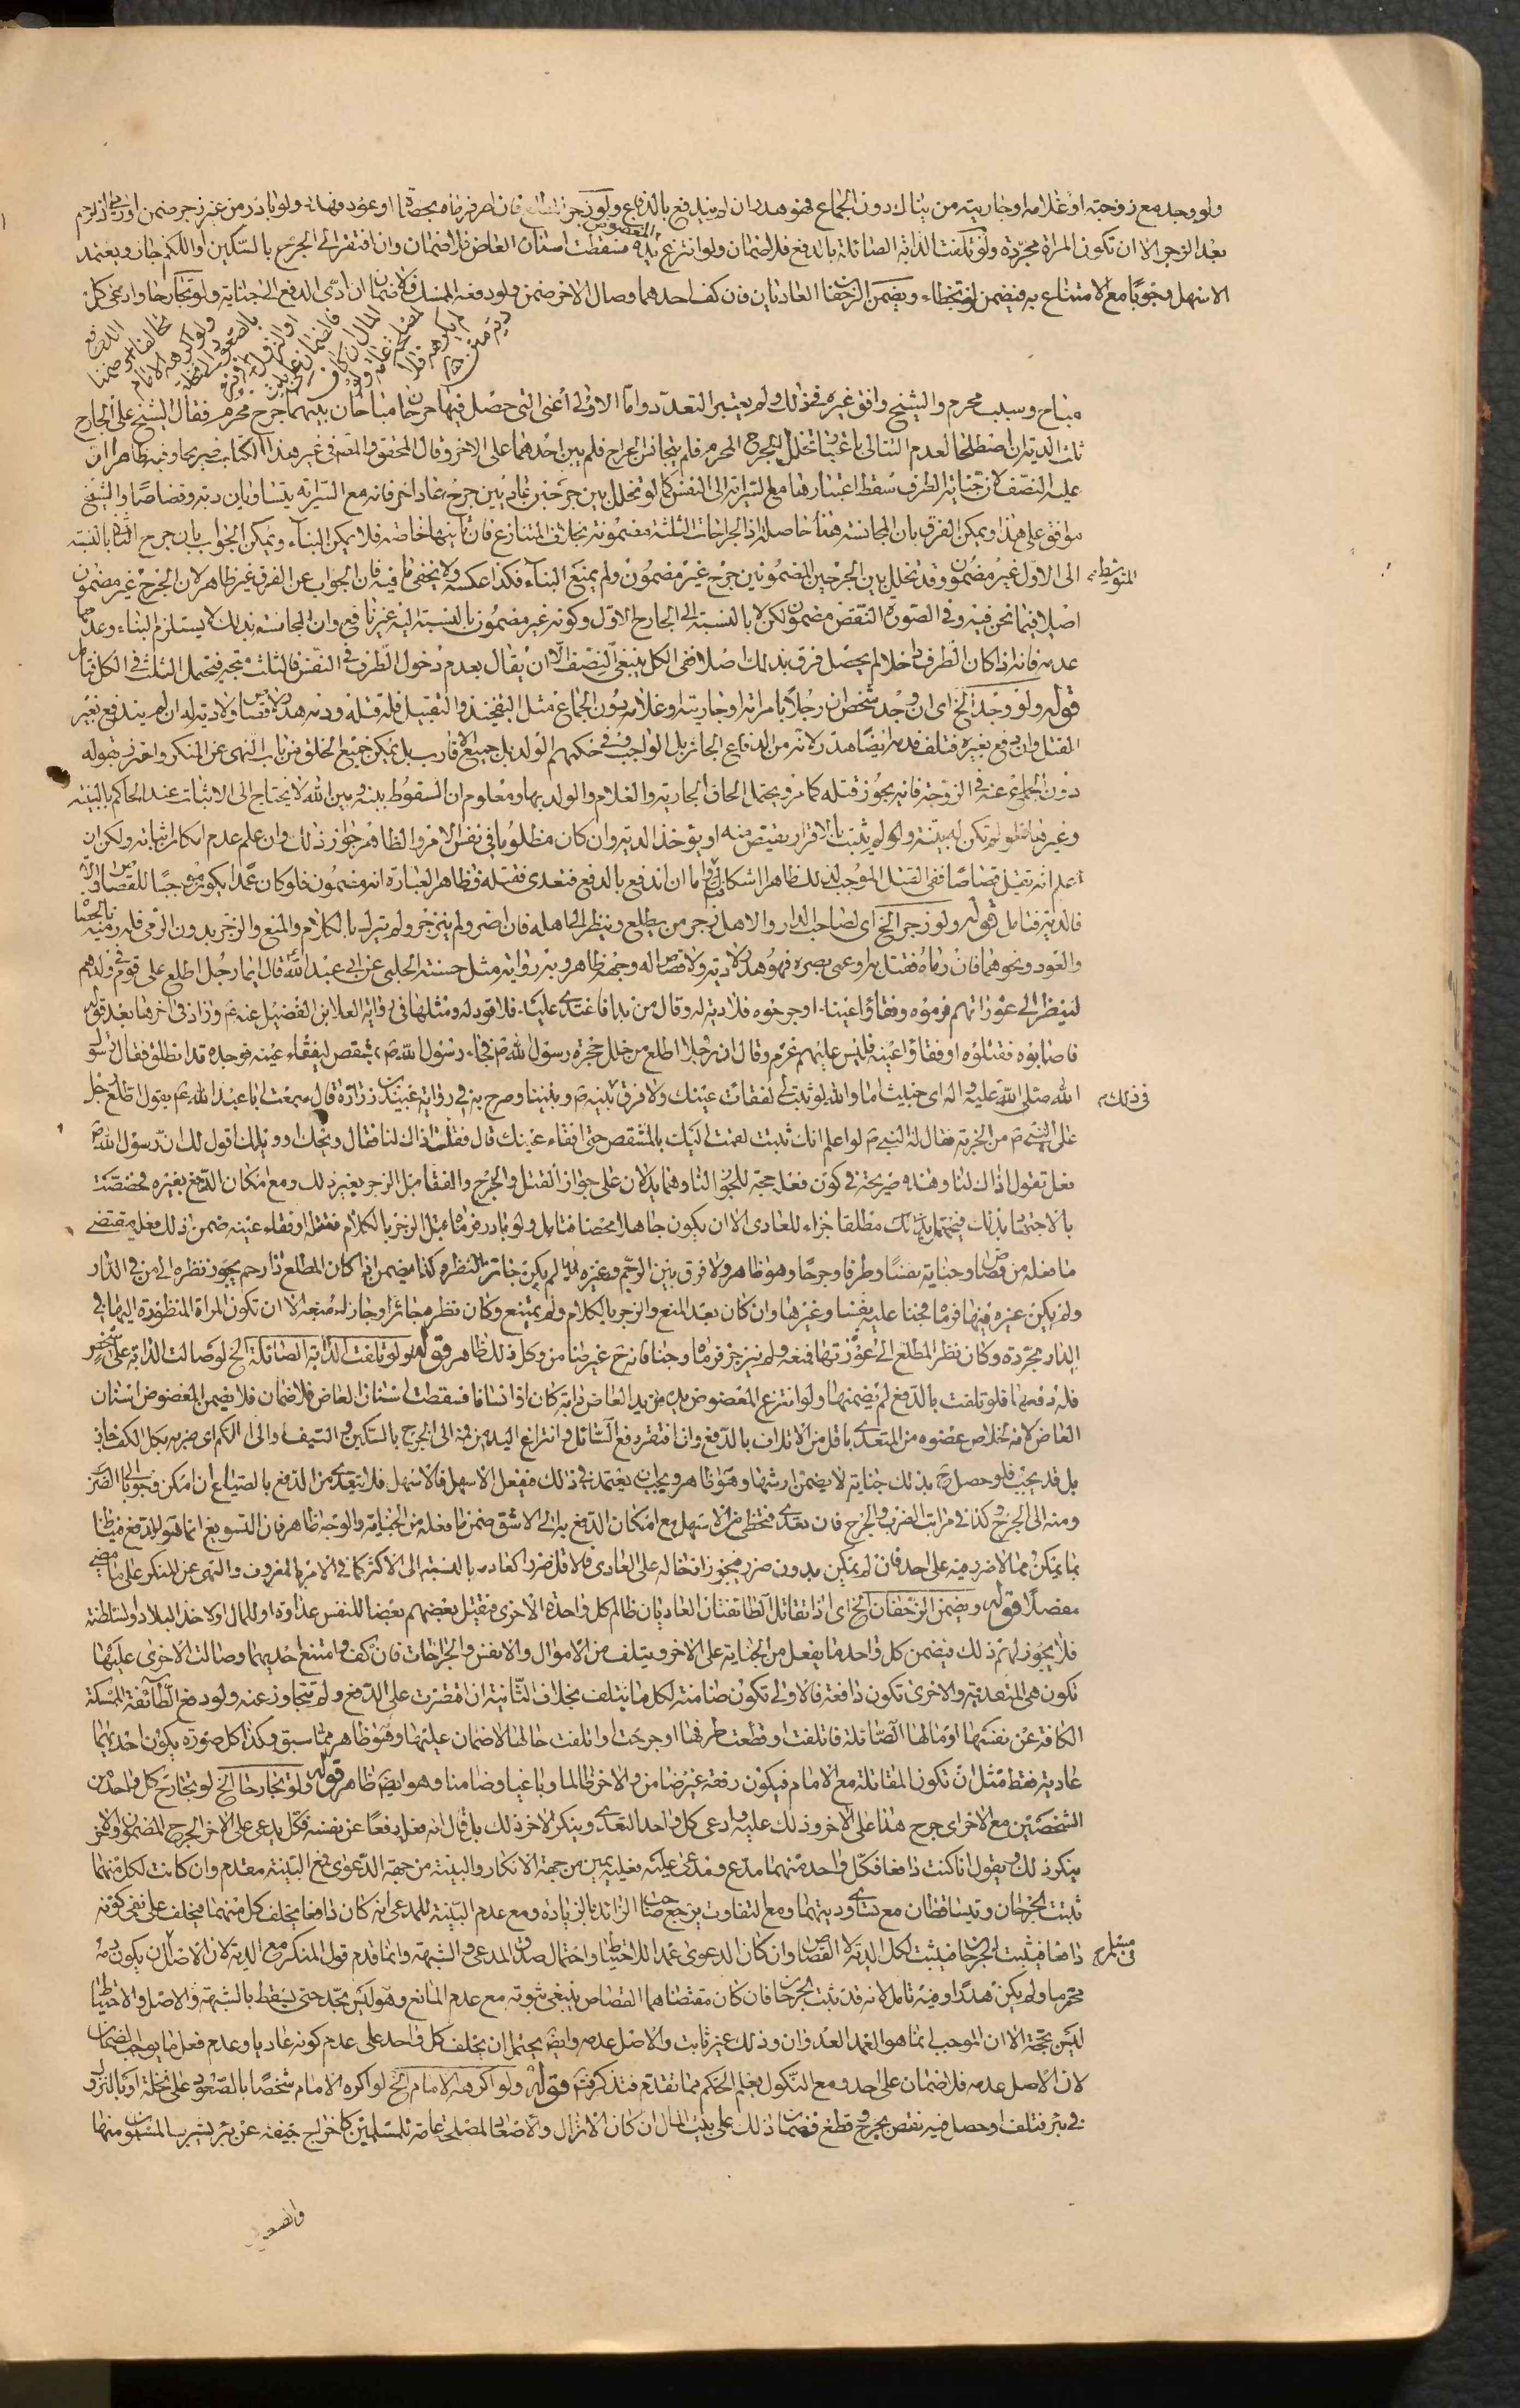 ولو وجد مع زوجته او غلامه او جاريته من ينال دون الجماع فهو هدر ان لم يندفع بالدفاع ولو زجر المطلع فان اصر فرماه بحصاة او عود فهدر ولو بادر من غير زجر ضمن او رمى ذا رحم
بعد الزجر الا ان تكون المراة مجردة ولو تلفت الدابة الصائلة بالدفع فلا ضمان ولو انتزع المعضوض يده فسقطت اسنان العاض فلا ضمان وان افتقر الى الجرح بالسكين واللكم جاز ويعتمد
الاسهل وجوبا مع الامتناع به فيضمن لو تخطاه ويضمن الزحفان العاديان فان كف احدهما وصال الاخر ضمن ولو دفعه الممسك فلا ضمان ان ادى الدفع الى جناية ولو تجارحا وادعى كل
مباح وسبب محرم والشيخ وافق غيره في ذلك ولم يعتبر التعدد واما الاولى اعنى التى حصل فيها جرحان مباحان بينهما جرح محرم فقال الشيخ على الجارح
ثلث الدية ان اصطلحا لعدم التنالى باعتبار تخلل الجرح المحرم فلم يتجانس الجراح فلم يبن احدهما على الاخر وقال المحقق والمصنف في غير هذا الكتاب صريحا وفيه ظاهرا ان
عليه النصف لان جناية الطرف يسقط اعتبارها مع السراية الى النفس كما لو تخلل بين جرحين عاديين جرح عاد اخر فانه مع السراية يتساويان دية وقصاصا والشيخ
موافق على هذا ويمكن الفرق بان المجانسة هنا حاصلة اذ الجراحات الثلثة مضمونة بخلاف المتنازع فان ثانيها خاصة فلا يمكن البناء ويمكن الجواب بان جرح الثانى بالنسبة
الى الاول غير مضمون وقد تخلل بين الجرحين المضمونين جرح غير مضمون ولم يمنع البناء فكذا عكسه ولا يخفى ما فيه فان الجواب عن الفرق غير ظاهر لان الجرح غير مضمون
المتوسط
اصلا فيما نحن فيه وفى الصورة النقض مضمون لكن لا بالنسبة الى الجارح الاول وكونه غير مضمون بالنسبة اليه غير نافع وان المجانسة بذلك لا يستلزم البناء وعدمها
عدمه فانه اذا كان الطرف داخلا لم يحصل فرق بذلك اصلا ففى الكل ينبغى النصف الا ان يقال بعدم دخول الطرف في النفس فالثلث متجه فيحتمل الثلث في الكل فتامل
قوله ولو وجد الخ اى ان وجد شخص ان رجلا بامراته او جاريته او غلامه بدون الجماع مثل التفخيذ والتقبيل فله قتله ودمه هدر لا قصاص ولا دية له ان لم يندفع بغير
القتل وان دفع بغيره فتلف فدمه ايضا هدر لانه من الدفاع الجائز بل الواجب وفى حكمهم الولد بل جميع الاقارب بل يمكن جميع الخلق من باب النهى عن المنكر واحترز بقوله
دون الجماع عنه في الزوجة فانه يجوز قتله كما مر ويحتمل الحاق الجارية والغلام والولد بها ومعلوم ان السقوط بينه وبين الله لا يحتاج الى الاثبات عند الحاكم بالبينة
وغيرها فلو لم تكن له بينة ولو لم يثبت بالاقرار يقتص منه او يؤخذ الدية وان كان مظلوما في نفس الامر والظاهر جواز ذلك وان علم عدم امكان اثباته ولكن ان
علم انه يقتل قصاصا ففى القتل الموجب لذلك ظاهرا اشكال واما ان اندفع بالدفع فتعدى فقتله فظاهر العبارة انه مضمون فلو كان عمدا يكون موجبا للقصاص والا
فالدية فتامل قوله ولو زجر الخ اى لصاحب الدار والاهل زجر من يطلع وينظر الى اهله فان اصر ولم ينزجر ولم يترك بالكلام والمنع والزجر بدون الرمى فله رميه بالحصا
والعود ونحوهما فان رماه فقتل به او عمى بصره فهو هدر لا دية ولا قصاص له وجهه ظاهر وبه رواية مثل حسنة الحلبى عن ابى عبد الله قال ايما رجل اطلع على قوم في دارهم
لينظر الى عوراتهم فرموه وفقأوا عينه او جرحوه فلا دية له وقال من بدا فاعتدى عليه فلا قود له ومثلها في رواية العلا بن الفضيل عنه ع وزاد في اخرها بعد قوله
فاصابوه فقتلوه او فقأوا عينيه فليس عليهم غرم وقال ان رجلا اطلع من خلل حجرة رسول الله ص فجاء رسول الله ص بمشقص ليفقاء عينه فوجده قد انطلق فقال رسول
الله صلى الله عليه واله اى خبيث اما والله لو ثبت لى لفقات عينك ولا فرق بينه ص وبيننا وصرح به في رواية عبيد بن زرارة قال سمعت ابا عبد الله ع يقول اطلع رجل
في ذلك
على النبي ص من الجريد فقال له النبي ص لو اعلم انك تثبت لقمت اليك بالمشقص حتى افقاء عينك قال فقلت اذاك لنا فقال ويحك او ويلك اقول لك ان رسول الله ص
فعل تقول اذاك لنا وهذه صريحة في كون فعله حجة للجواز لنا وهما يدلان على جواز القتل والجرح والفقا قبل الزجر بغير ذلك ومع امكان الدفع بغيره فخصصت
بالاجتها بذلك فيحتمل ذلك مطلقا جزاء للعادى الا ان يكون جاهلا محضا فتامل ولو بادر فرماه قبل الزجر بالكلام فقتله او فقاء عينه ضمن ذلك فعليه مقتضى
ما فعله من قصاص وجناية نفسا وطرفا وجرحا وهو ظاهر ولا فرق بين الرحم وغيره لانه لم يكن جائز النظر وكذا يضمن اذا كان المطلع ذا رحم يجوز نظره الى من في الدار
ولم يكن غيره فيها فرماه فجنا عليه نفسا وغيرها وان كان بعد المنع والزجر بالكلام ولم يمتنع وكان نظره جائزا وجاز له منعه الا ان تكون المراة المنظورة اليها في
الدار مجردة وكان نظر المطلع الى عورتها فمنعه ولم ينزجر فرماه وجنا فانه ح غير ضامن وكل ذلك ظاهر قوله ولو تلفت الدابة الصائلة الخ لو صالت الدابة على شخص
فله دفعها فلو تلفت بالدفع لم يضمنها ولو انتزع المعضوض يده من يد العاض دابة كان او انسانا فسقطت اسنان العاض فلا ضمان فلا يضمن المعضوض اسنان
العاض لانه لخلاص عضوه من المتعدى باقل من الاتلاف بالدفع وان افتقر دفع السائل وانتزاع اليد من فيه الى الجرح بالسكين والسيف والى اللكم اى ضربه بكل الكف جاز
بل قد يجب فلو حصل ح بذلك جناية لا يضمن ارشها وهو ظاهر ويجب ان يعتمد في ذلك فيفعل الاسهل فالاسهل فلا يتعدى من الدفع بالصياح ان امكن وجوبا الى الضرب
ومنه الى الجرح وكذا في مراتب الضرب والجرح فان تعدى فتخطى من الاسهل مع امكان الدفع به الى الاشق ضمن ما فعله من الجناية والوجه ظاهر فان التسويغ انما هو للدفع فيناط
بما يمكن مما لا ضرر فيه على احد فان لم يمكن بدون ضرر فيجوز ادخاله على العادى فالاقل ضررا كعادته بالنسبة الى الاكثر كما في الامر بالمعروف والنهى عن المنكر على ما مضى
مفصلا قوله ويضمن الزحفان الخ اى اذا تقاتل الطائفتان العاديان ظالم كل واحدة الاخرى فيقتل بعضهم بعضا للنفس عداوة او للمال او لاخذ البلاد والسلطنة
فلا يجوز لهم ذلك فيضمن كل واحد ما يفعل من الجناية على الاخر ويتلف من الاموال والانفس والجراحات فان كف وامتنع احديهما وصالت الاخرى عليها
تكون هى المتعدية والاخرى تكون دافعة فالاولى تكون ضامنة لكل ما يتلف بخلاف الثانية ان اقتصرت على الدفع ولم تتجاوز عنه ولو دفع الطائفة الممسكة
الكافة عن نفسها او مالها الصائلة فاتلفت او قطعت طرفها او جرحت او اتلفت مالها لا ضمان عليها وهو ظاهر مما سبق وكذا كل صورة يكون احديهما
عادية فقط مثل ان تكون المقاتلة مع الامام فيكون رفعة غير ضامن والاخر ظالما وباغيا وضامنا وهو ايضا ظاهر قوله ولو تجارحا الخ لو تجارح كل واحد من
الشخصين مع الاخر اى جرح هذا على الاخر وذلك عليه وادعى كل واحد التعدى وينكر الاخر ذلك بان قال انه فعله دفعا عن نفسه فكل يدعى على الاخر الجرح المضمون والاخر
ينكر ذلك ويقول انا كنت دافعا فكل واحد منهما مدع ومدعى عليه فعليه يمين من جهة الانكار والبينة من جهة الدعوى فمع البينة مقدم وان كانت لكل منهما
ثبت الجرحان ويتساقطان مع تساوى ديتهما ومع التفاوت يرجع صاحب الزائد بالزيادة ومع عدم البينة للمدعى انه كان دافعا يحلف كل منهما فيحلف على نفى كونه
دافعا فيثبت الجرحان فيثبت لكل الدية لا القصاص وان كان الدعوى عمدا للاحتياط واحتمال صدق المدعى والشبهة وانما قدم قول المنكر مع الدية لان الاصل ان يكون دمه
محترما ولم يكن هدرا وفيه تامل لانه قد يثبت الجرحان فان كان مقتضاهما القصاص ينبغى ثبوته مع عدم المانع وهو ليس بحد حتى يسقط بالشبهة والاصل والاحتياط
ليس بحجة الا ان الموجب انما هو العمد العدوان وذلك غير ثابت والاصل عدمه وايضا يحتمل ان يحلف كل واحد على عدم كونه عاديا وعدم فعل ما يوجب الضمان
لان الاصل عدمه فلا ضمان على احد ومع النكول يعلم الحكم مما تقدم فتذكر فتم قوله ولو اكرهه الامام الخ لو اكره الامام شخصا بالصعود على نخلة او بالنزول
في بئر فتلف او حصل فيه نقص بجرح وقطع فضمان ذلك على بيت المال ان كان الانزال والاصعاد لمصلحة عامة للمسلمين كاخراج جيفة عن بئر يشرب المسلمون منها